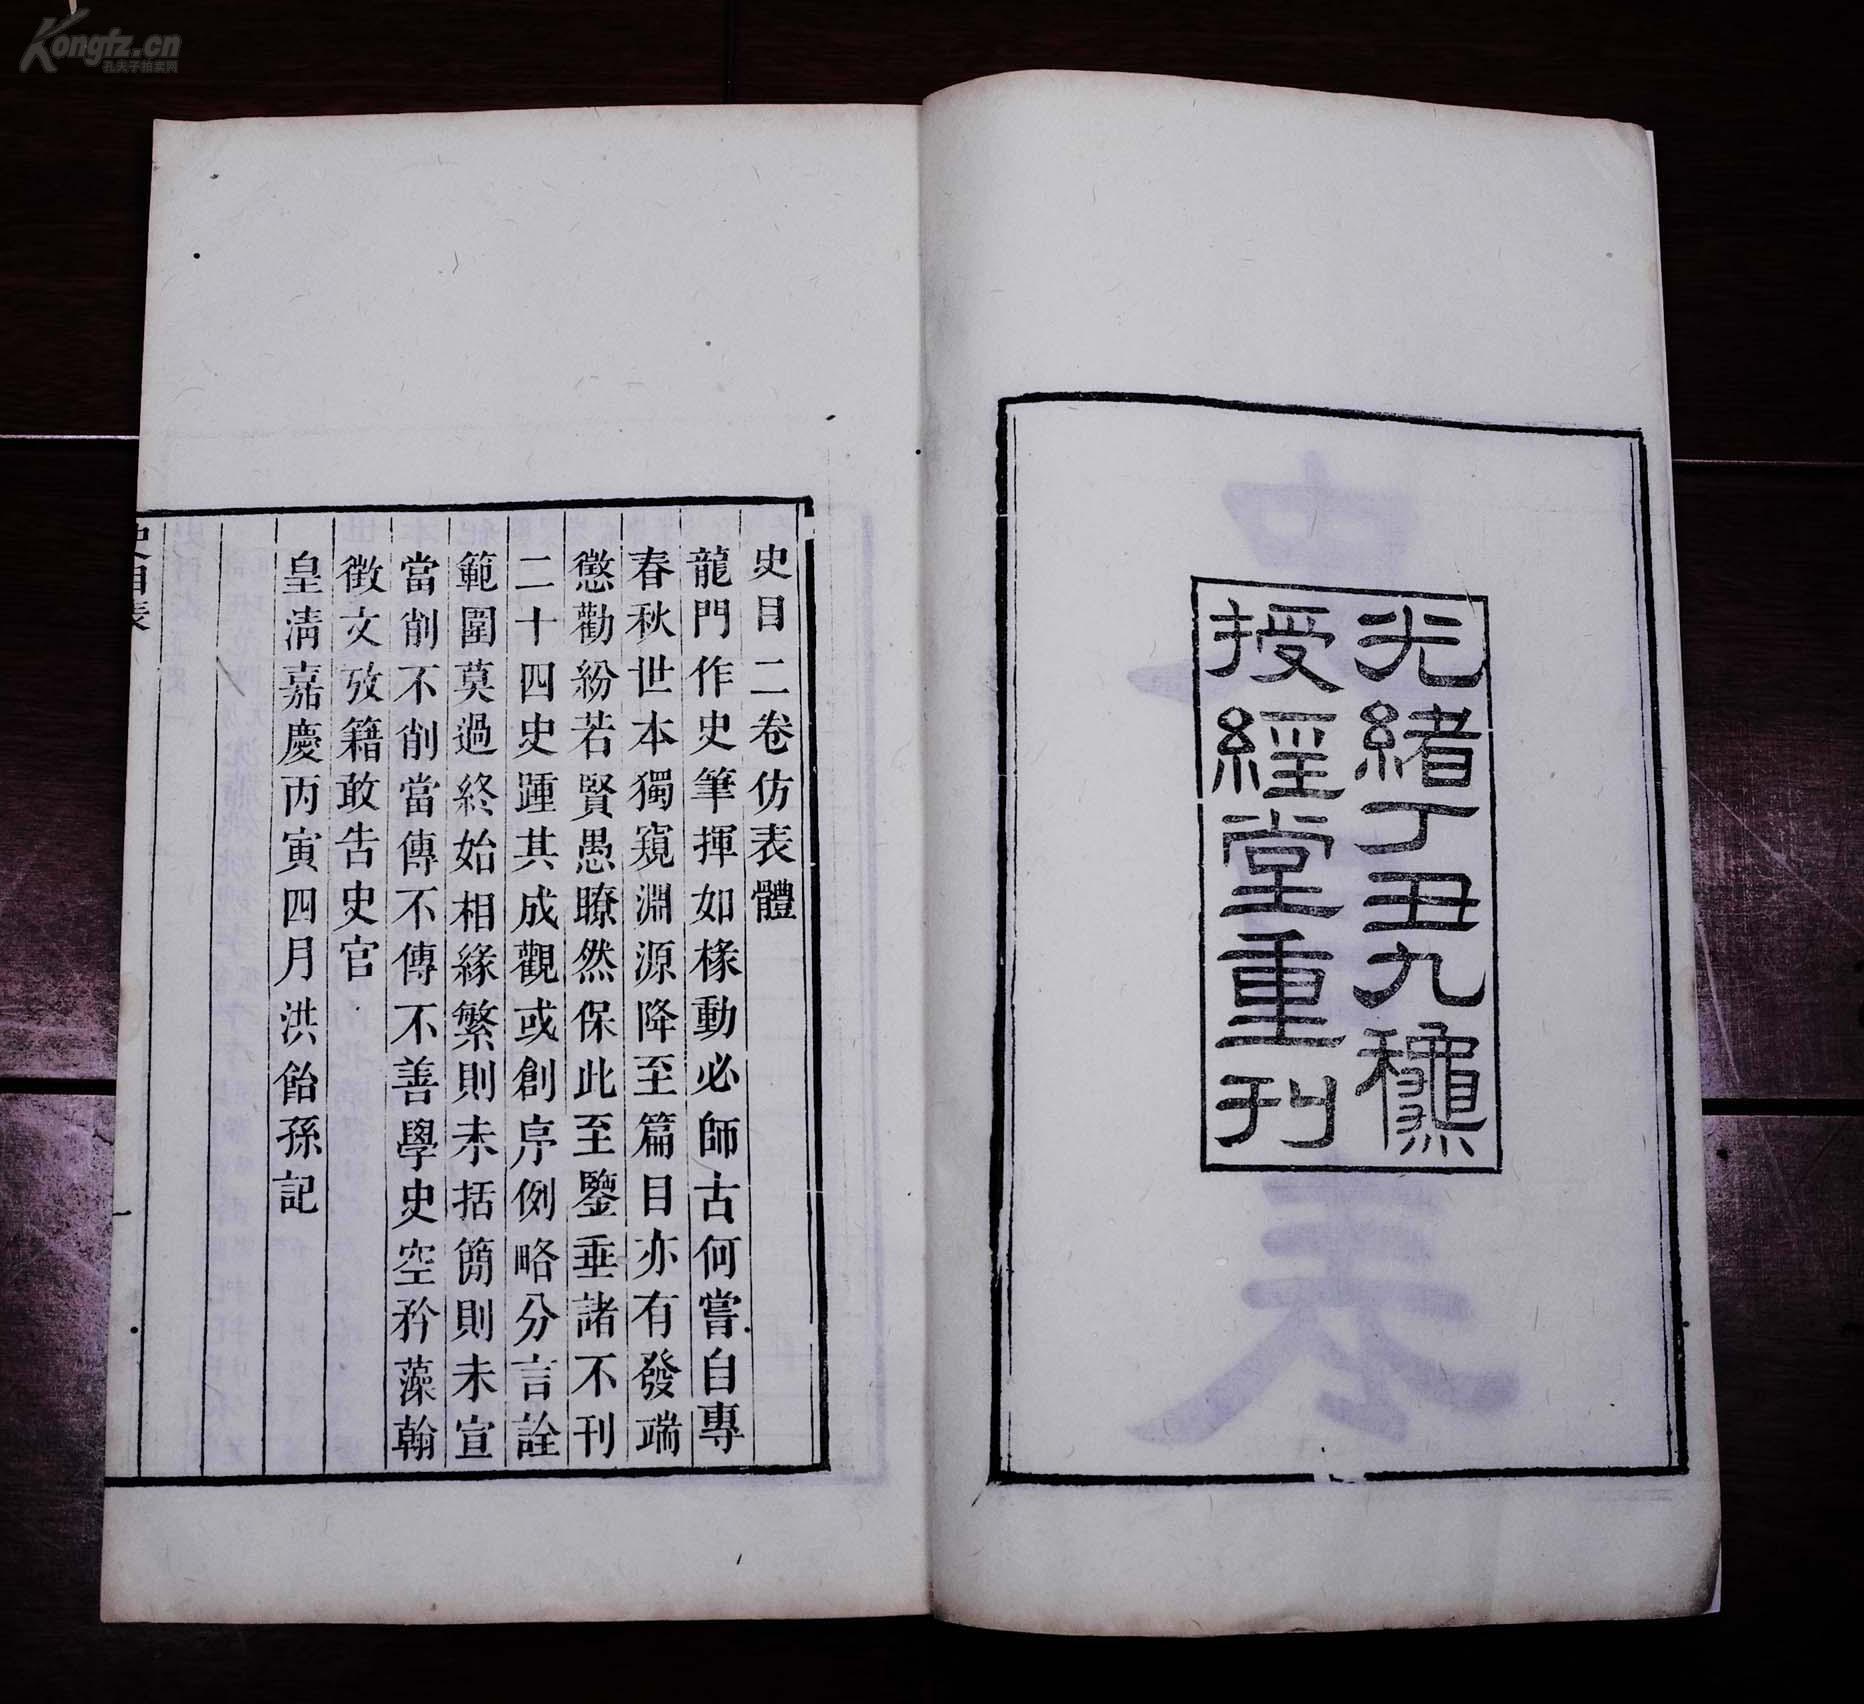 Kongfz.cn
孔夫子拍卖网
光緒丁丑九穐
授經堂重刊
史目二卷仿表體
龍門作史筆揮如椽動必師古何嘗自專
春秋世本獨窺淵源降至篇目亦有發端
懲勸紛若賢愚瞭然保此至鑒垂諸不刊
二十四史踵其成觀或創序例略分言詮
範圍莫過終始相緣繁則未括簡則未宣
當削不削當傳不傳不善學史空矜藻翰
徴文攷籍敢告史官
皇清嘉慶丙寅四月洪飴孫記
史目表
一